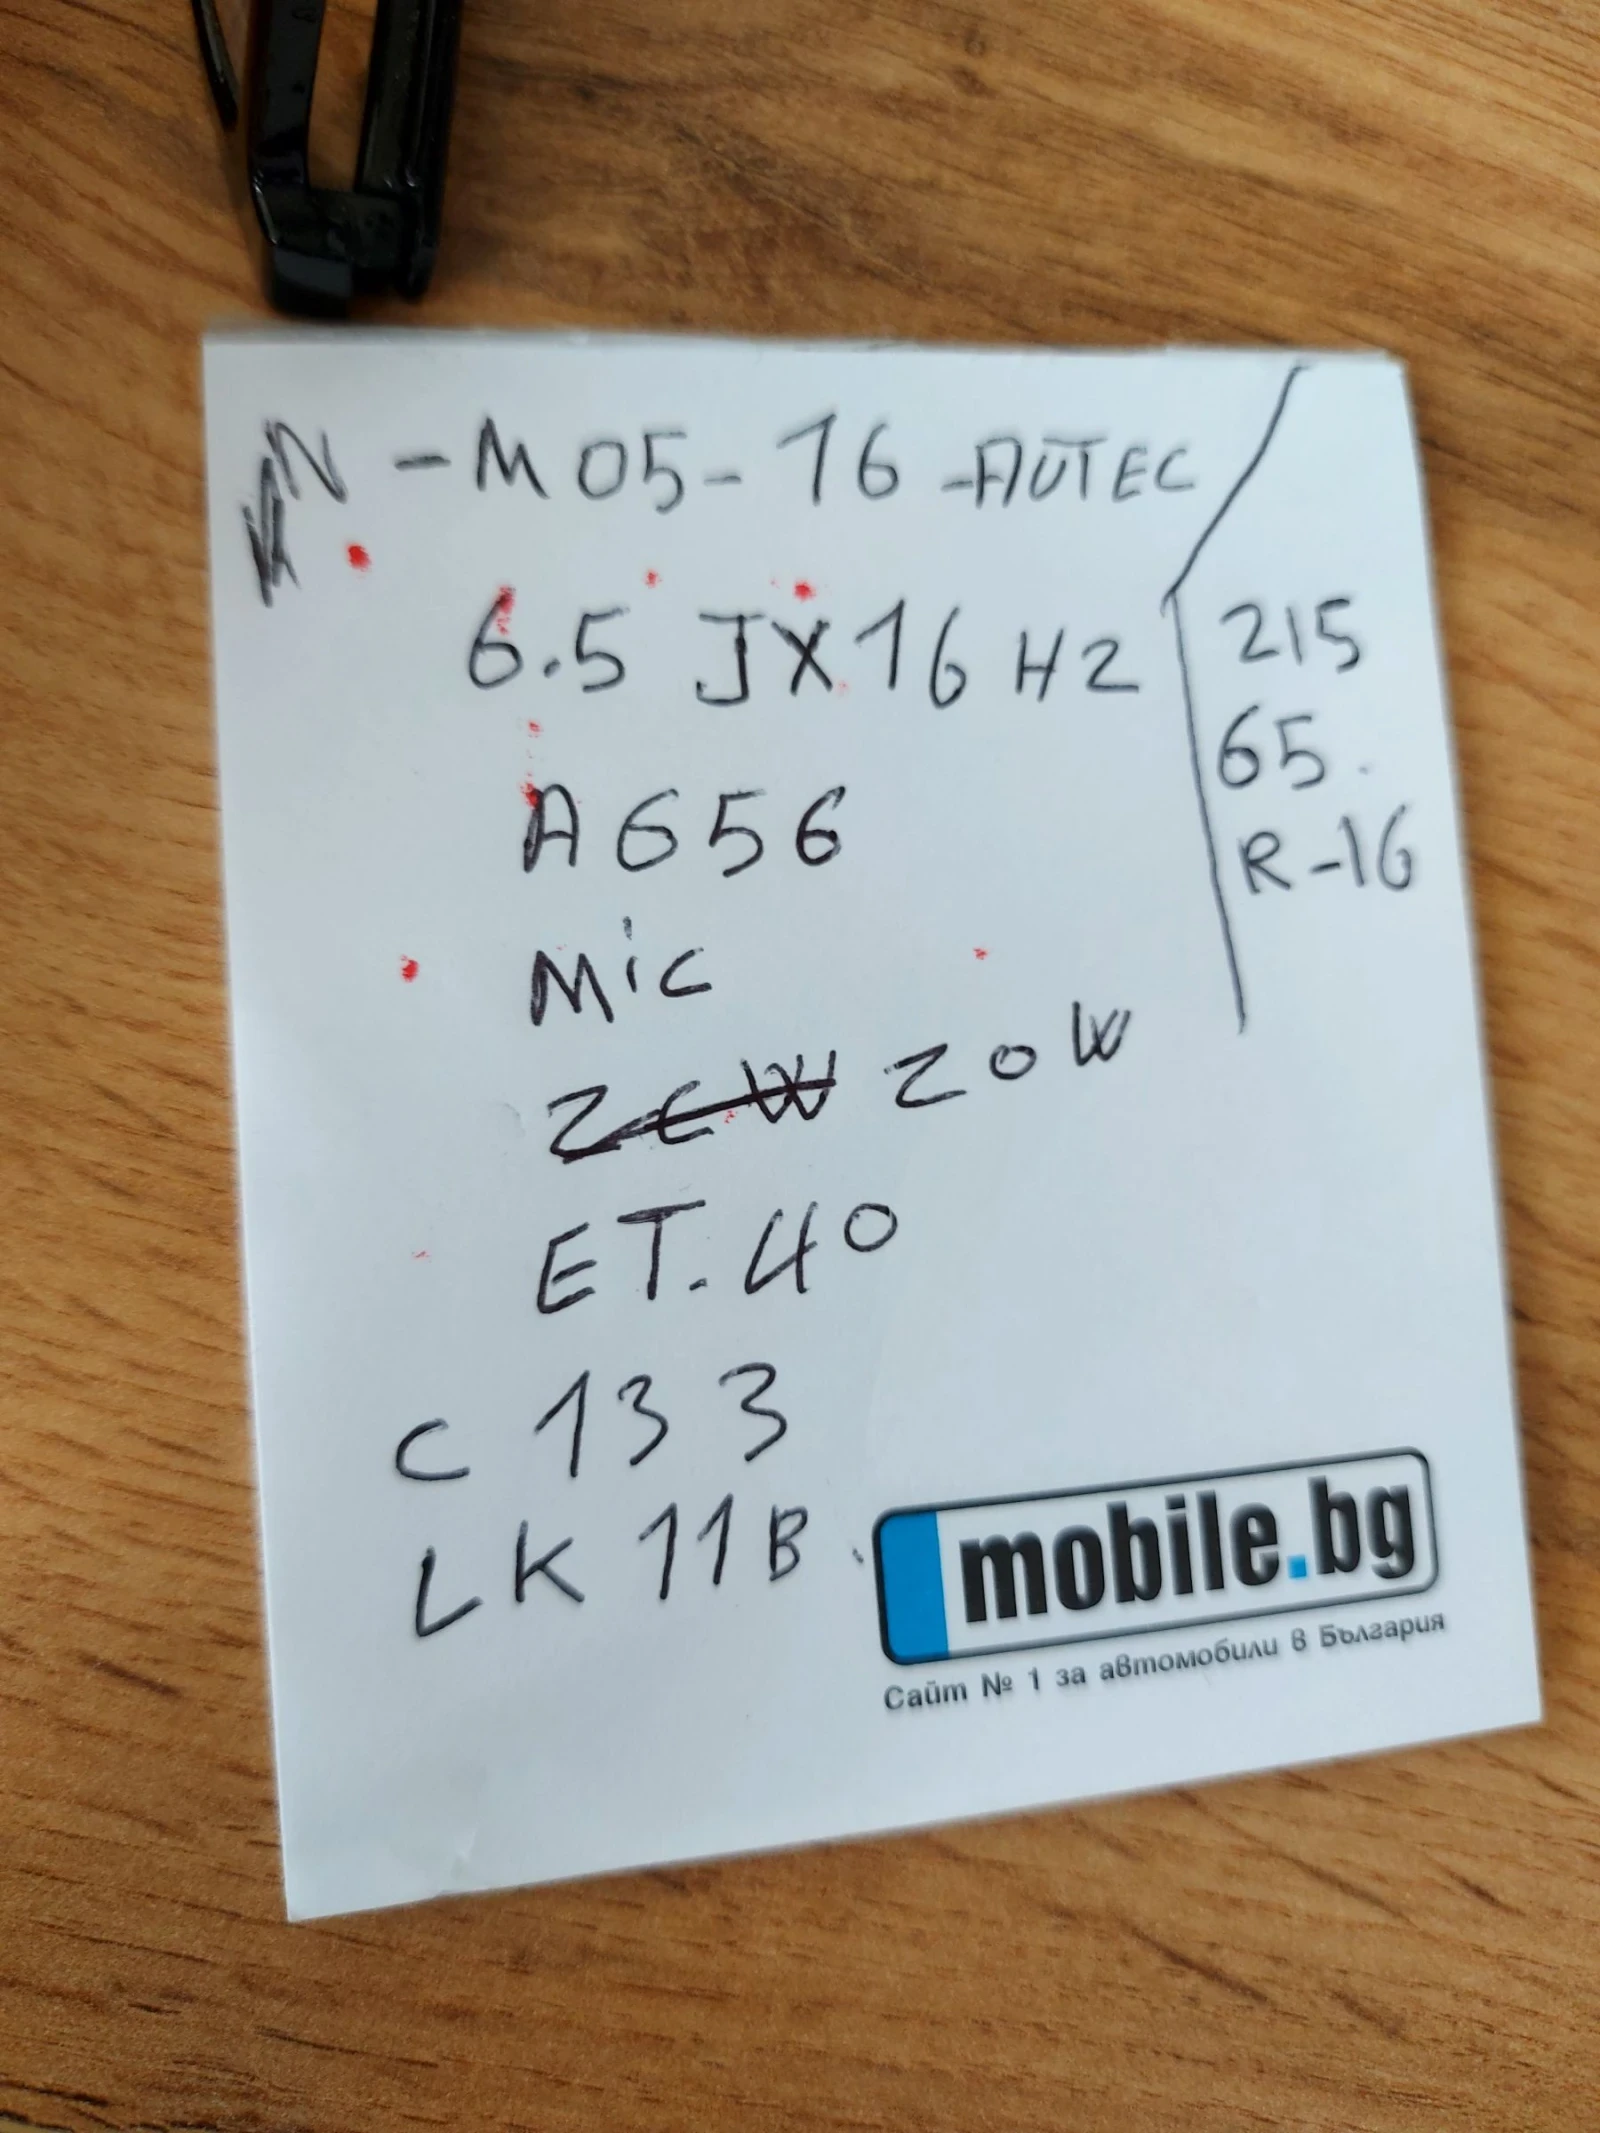 N - M 05 - 16 - AUTEC
6.5 JX16 H2
A 656
Mic
ZCW ZOW
ET. 40
C 133
LK 11B
215
65.
R-16
mobile.bg
Сайт № 1 за автомобили в България